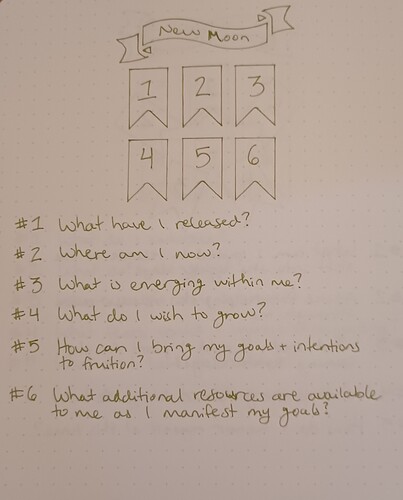 New Moon
1 2 3
4 5 6
#1 What have I released?
#2 Where am I now?
#3 What is emerging within me?
#4 What do I wish to grow?
#5 How can I bring my goals + intentions
to fruition?
#6 What additional resources are available
to me as I manifest my goals?